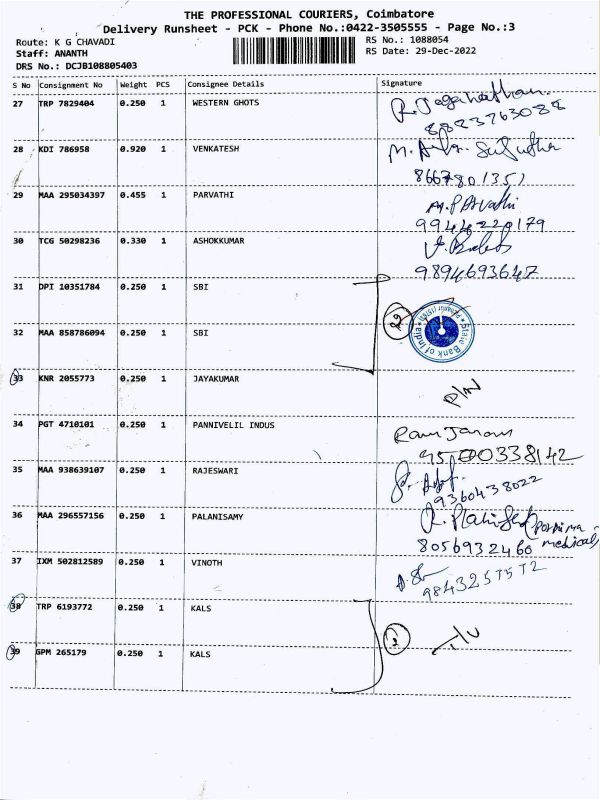 THE PROFESSIONAL COURIERS, Coimbatore
Delivery Runsheet - PCK - Phone No.:0422-3505555 - Page No.:3
Route: K G CHAVADI
RS No.: 1088054
Staff: ANANTH
RS Date: 29-Dec-2022
DRS No.: DCJB108805403
S No Consignment No Weight PCS Consignee Details Signature
27 TRP 7829404 0.250 1 WESTERN GHOTS R. Jaganathan
8883763088
28 KDI 786958 0.920 1 VENKATESH M.
8667801351
29 MAA 295034397 0.455 1 PARVATHI M.PARvathi
9944220179
30 TCG 50298236 0.330 1 ASHOKKUMAR
9894693647
31 DPI 10351784 0.250 1 SBI
State Bank of India
32 MAA 858786094 0.250 1 SBI
33 KNR 2055773 0.250 1 JAYAKUMAR
34 PGT 4710101 0.250 1 PANNIVELIL INDUS
9500338142
35 MAA 938639107 0.250 1 RAJESWARI
9360438022
36 MAA 296557156 0.250 1 PALANISAMY
8056932460 medical
37 IXM 502812589 0.250 1 VINOTH
9843257572
38 TRP 6193772 0.250 1 KALS
39 GPM 265179 0.250 1 KALS